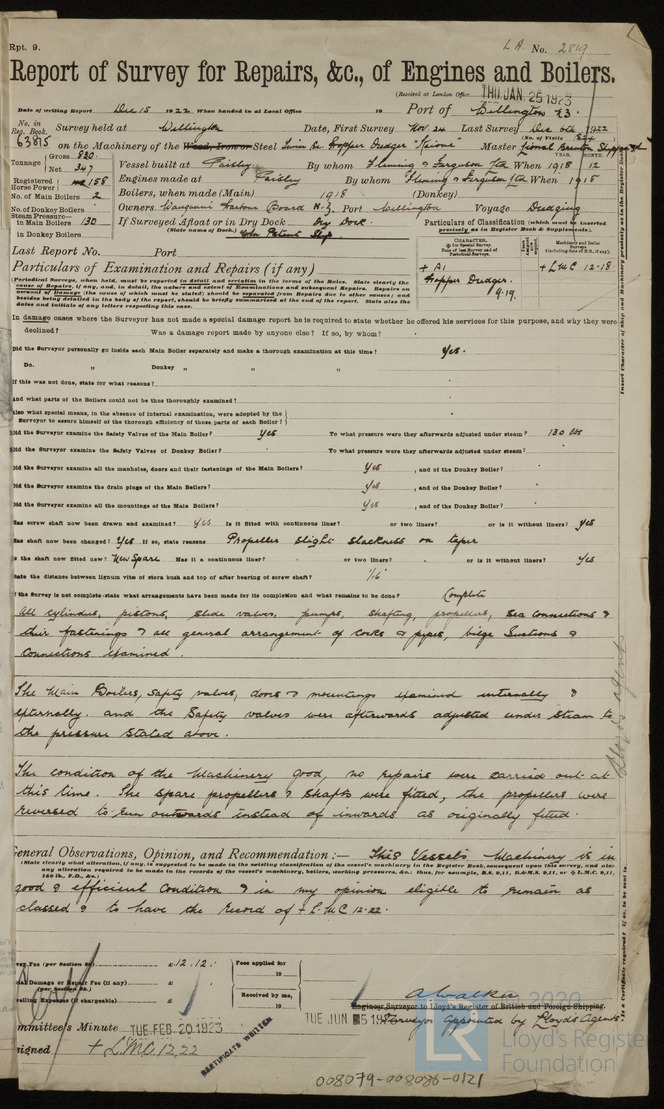 Rpt. 9.
L.A. No. 2819
Report of Survey for Repairs, &c., of Engines and Boilers.
(Received at London Office THU. JAN. 25 1923
Date of writing Report Dec 15 1922 When handed in at Local Office 19 Port of Wellington N.Z.
No. in Reg. Book. 63815
Survey held at Wellington Date, First Survey Nov. 24 Last Survey Dec 6th 1922
(No. of Visits
on the Machinery of the Wood, Iron or Steel Twin Sc Hopper Dredger "Kaione" Master
Tonnage Gross 820
Net 347
Vessel built at Paisley By whom Fleming & Ferguson Ltd When 1918 12
YEAR. MONTH.
Registered Horse Power 158
Engines made at Paisley By whom Fleming & Ferguson Ltd When 1918
No. of Main Boilers 2
Boilers, when made (Main) 1918 (Donkey)
No. of Donkey Boilers
Owners Wanganui Harbour Board N.Z. Port Wellington Voyage Dredging
Steam Pressure—
in Main Boilers 130
If Surveyed Afloat or in Dry Dock Dry Dock
(State name of Dock.) Patent Slip
in Donkey Boilers
Particulars of Classification (which must be inserted precisely as in Register Book & Supplements).
Last Report No. Port
CHARACTER.
Machinery and Boiler Surveys
+ A1
Hopper Dredger.
9.19.
+ LMC 12-18
Particulars of Examination and Repairs (if any)
(Periodical Surveys, when held, must be reported in detail and seriatim in the terms of the Rules. State clearly the
cause of Repairs, if any, and, in detail, the nature and extent of Examinations and subsequent Repairs. Repairs on
account of Damage (the cause of which must be stated) should be separated from Repairs due to other causes; and
besides being detailed in the body of the report, should be briefly summarised at the end of the report. State also the
dates and initials of any letters respecting this case.
In damage cases where the Surveyor has not made a special damage report he is required to state whether he offered his services for this purpose, and why they were
declined? Was a damage report made by anyone else? If so, by whom?
Did the Surveyor personally go inside each Main Boiler separately and make a thorough examination at this time? Yes.
Do. " Donkey " " "
If this was not done, state for what reasons?
And what parts of the Boilers could not be thus thoroughly examined?
Also what special means, in the absence of internal examination, were adopted by the
Surveyor to assure himself of the thorough efficiency of those parts of each Boiler?
Did the Surveyor examine the Safety Valves of the Main Boiler? Yes To what pressure were they afterwards adjusted under steam? 130 lbs
Did the Surveyor examine the Safety Valves of Donkey Boiler? To what pressure were they afterwards adjusted under steam?
Did the Surveyor examine all the manholes, doors and their fastenings of the Main Boilers? Yes , and of the Donkey Boiler?
Did the Surveyor examine the drain plugs of the Main Boilers? Yes , and of the Donkey Boiler?
Did the Surveyor examine all the mountings of the Main Boilers? Yes , and of the Donkey Boiler?
Has screw shaft now been drawn and examined? Yes Is it fitted with continuous liner? or two liners? or is it without liners? Yes
Has shaft now been changed? Yes If so, state reasons Propeller slight slackness on taper
Is the shaft now fitted new? New Spare Has it a continuous liner? or two liners? or is it without liners? Yes
State the distance between lignum vitæ of stern bush and top of after bearing of screw shaft? 1/16"
If the Survey is not complete state what arrangements have been made for its completion and what remains to be done? Complete
All cylinders, pistons, slide valves, pumps, shafting, propellers, sea connections &
their fastenings & all general arrangement of cocks & pipes, bilge suctions &
connections examined.
The Main Boilers, safety valves, doors & mountings examined internally &
externally. and the safety valves were afterwards adjusted under steam to
the pressure stated above.
The condition of the machinery good, no repairs were carried out at
this time. The spare propellers & shafts were fitted, the propellers were
reversed to run outwards instead of inwards as originally fitted.
General Observations, Opinion, and Recommendation:— This Vessel's Machinery is in
(State clearly what alteration, if any, is suggested to be made in the existing classification of the vessel's machinery in the Register Book, consequent upon this survey, and also
any alteration required to be made in the records of the vessel's machinery, boilers, working pressures, &c.; thus, for example, B.S. 9,11, B.&M.S. 9,11, or L.M.C. 9,11,
good & efficient condition & in my opinion eligible to remain as
classed & to have the record of + L.M.C 12-22.
Survey Fee £12.12.
Special Damage or Repair Fee (if any) £
Travelling Expenses (if chargeable) £
Fees applied for 19
Received by me, 19
A Walker
Engineer Surveyor to Lloyd's Register of British and Foreign Shipping.
Surveyor appointed by Lloyds Agents
Committee's Minute TUE. FEB. 20 1923
TUE. JUN 5 1923
Assigned + L.M.C. 12,22
CERTIFICATE WRITTEN
Lloyds agents
2020
LR
Lloyd's Register
Foundation
008079-008086-0121